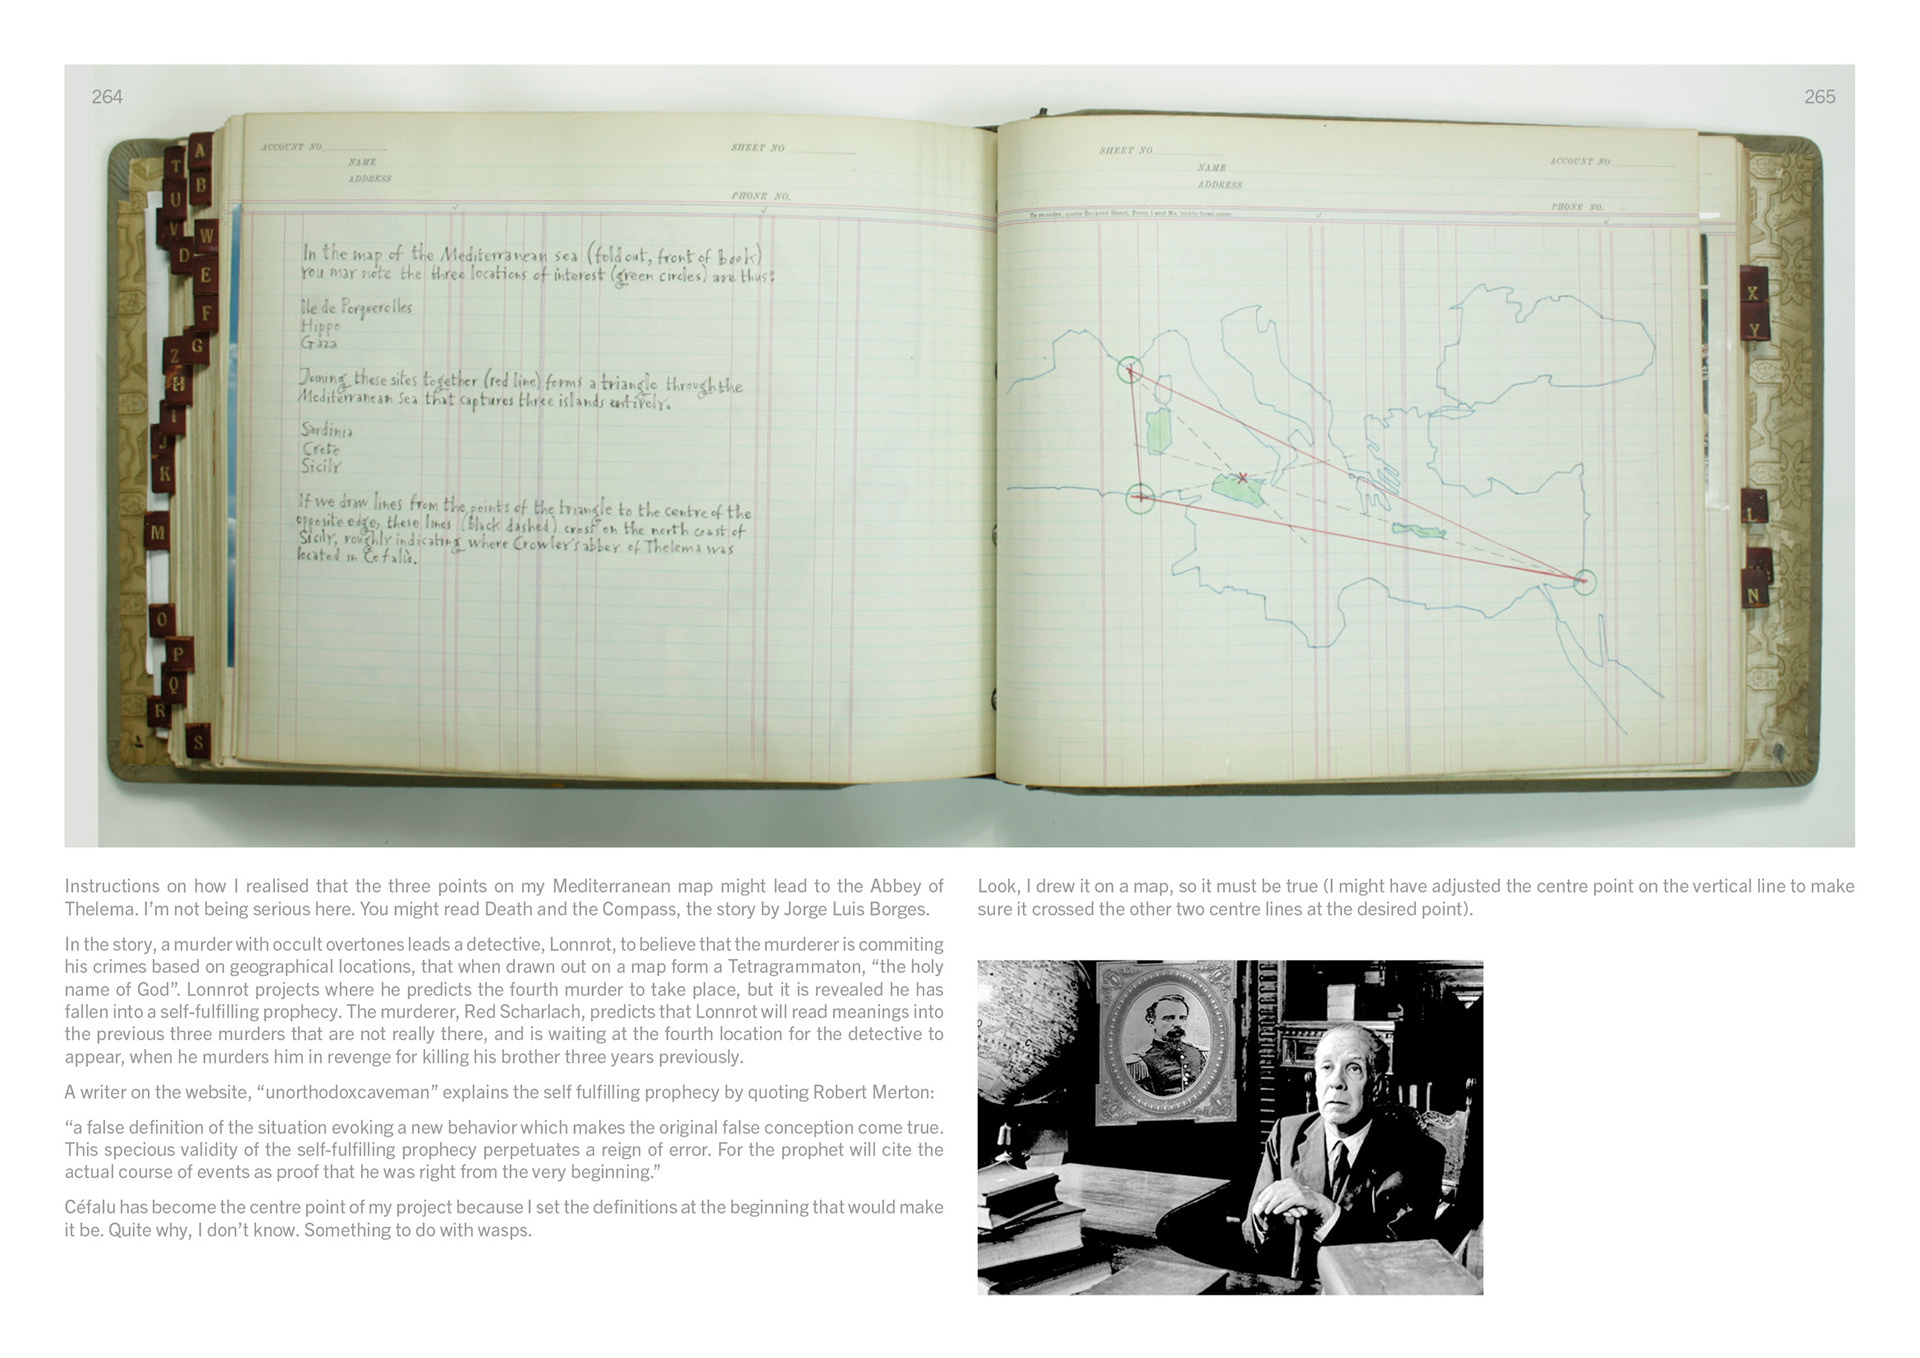 264
265
ACCOUNT NO
SHEET NO
NAME
ADDRESS
PHONE NO.
In the map of the Mediterranean sea (fold out, front of book)
You may note the three locations of interest (green circles) are thus:
Ile de Porquerolles
Hippo
Gaza
Joining these sites together (red line) forms a triangle through the
Mediterranean Sea that captures three islands entirely.
Sardinia
Crete
Sicily
If we draw lines from the points of the triangle to the centre of the
opposite edge, these lines (black dashed) cross on the north coast of
Sicily, roughly indicating where Crowley's abbey of Thelema was
located in Cefalù.
SHEET NO
ACCOUNT NO
NAME
ADDRESS
PHONE NO.
A
T
B
U
V
W
D
E
F
G
Z
H
I
J
K
M
O
P
Q
R
S
X
Y
L
N
Instructions on how I realised that the three points on my Mediterranean map might lead to the Abbey of
Thelema. I'm not being serious here. You might read Death and the Compass, the story by Jorge Luis Borges.
In the story, a murder with occult overtones leads a detective, Lonnrot, to believe that the murderer is commiting
his crimes based on geographical locations, that when drawn out on a map form a Tetragrammaton, “the holy
name of God”. Lonnrot projects where he predicts the fourth murder to take place, but it is revealed he has
fallen into a self-fulfilling prophecy. The murderer, Red Scharlach, predicts that Lonnrot will read meanings into
the previous three murders that are not really there, and is waiting at the fourth location for the detective to
appear, when he murders him in revenge for killing his brother three years previously.
A writer on the website, “unorthodoxcaveman” explains the self fulfilling prophecy by quoting Robert Merton:
“a false definition of the situation evoking a new behavior which makes the original false conception come true.
This specious validity of the self-fulfilling prophecy perpetuates a reign of error. For the prophet will cite the
actual course of events as proof that he was right from the very beginning.”
Céfalu has become the centre point of my project because I set the definitions at the beginning that would make
it be. Quite why, I don't know. Something to do with wasps.
Look, I drew it on a map, so it must be true (I might have adjusted the centre point on the vertical line to make
sure it crossed the other two centre lines at the desired point).